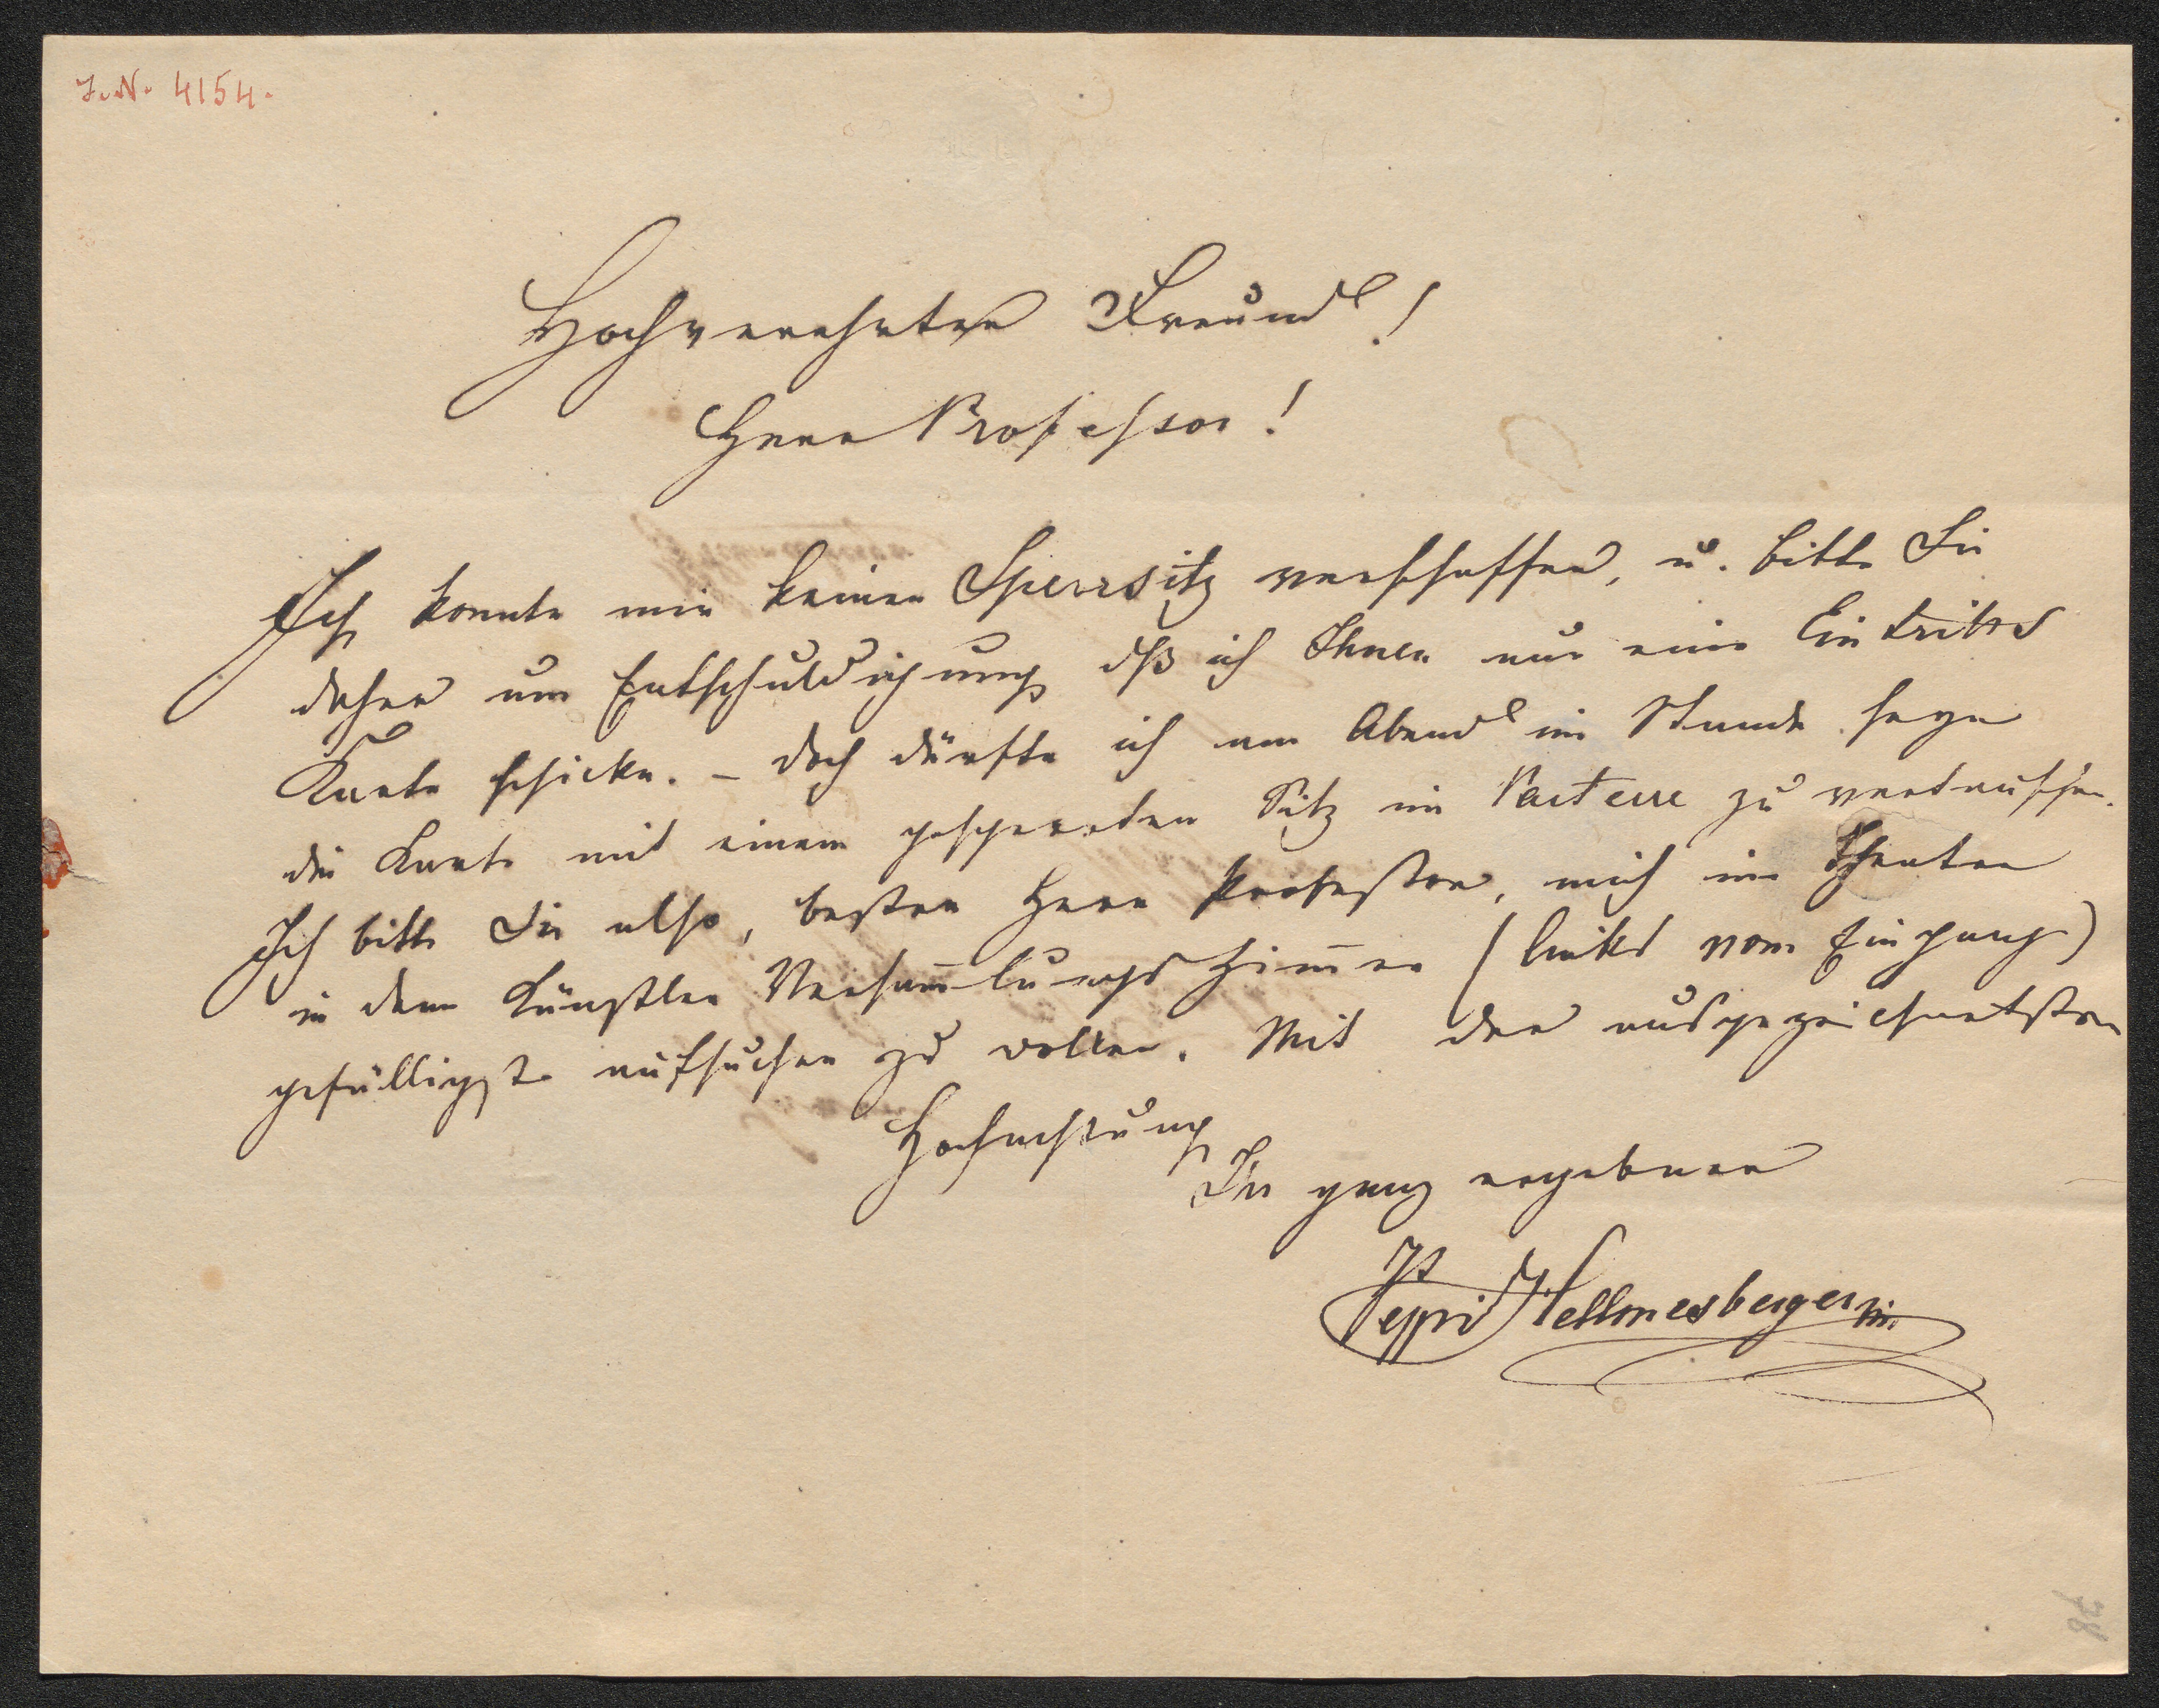 J. N. 4154.
Hochverehrter Freund!
Herr Professor!
Ich konnte mir keinen Sperrsitz verschaffen, u. bitte Sie
daher um Entschuldigung dß ich Ihnen nur eine Eintritts
Karte schicke. – doch dürfte ich am Abend im Stande seyn
die Karte mit einem gesperrten Sitz im Parterre zu vertauschen.
Ich bitte Sie also, bester Herr Professor, mich im Theater
in dem Künstler Versam̅lungs Zim̅er (links vom Eingang)
gefälligst aufsuchen zu wollen. Mit der ausgezeichnetsten
Hochachtung
Ihr ganz ergebener
Peppi Hellmesberger
78